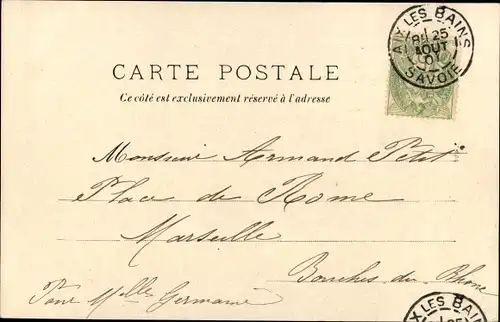 AIX LES BAINS
25
AOUT
01
SAVOIE
CARTE POSTALE
Ce côté est exclusivement réservé à l'adresse
Monsieur Armand Petit
Place de Rome
Marseille
Bouches du Rhône
Pour Mlles Germaine
IX LES BAINS